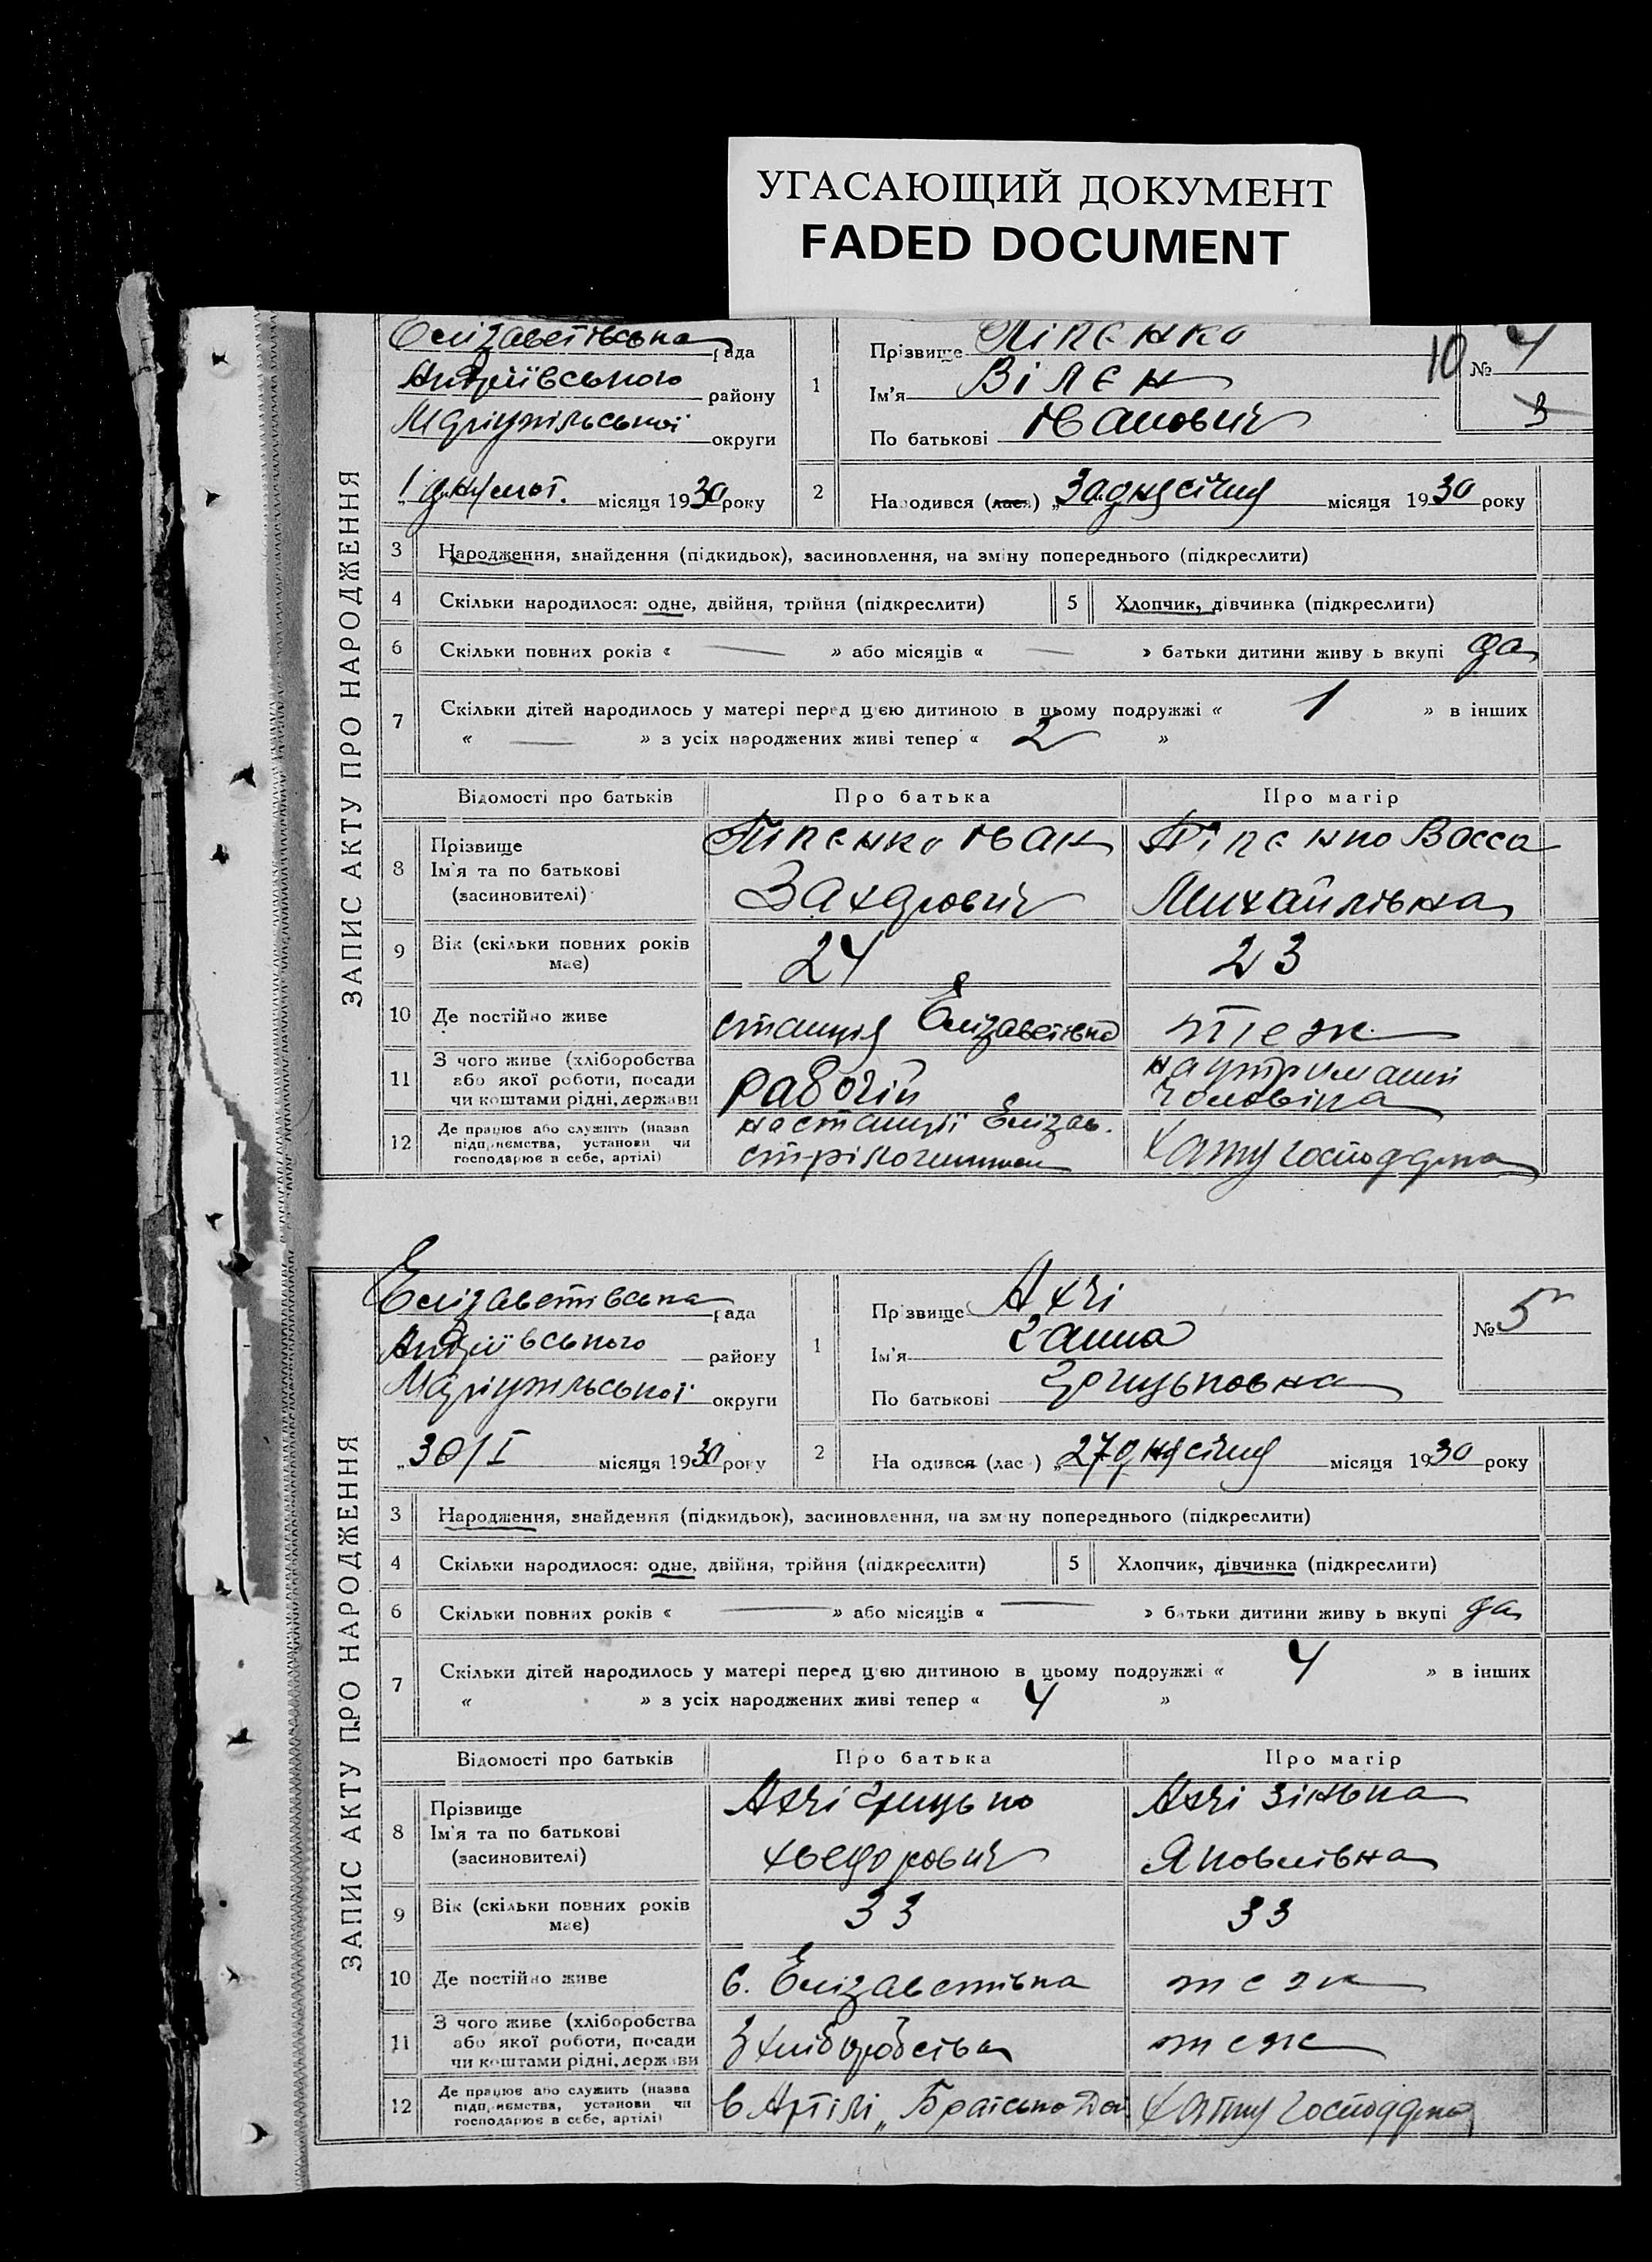 УГАСАЮЩИЙ ДОКУМЕНТ
FADED DOCUMENT
ЗАПИС АКТУ ПРО НАРОДЖЕННЯ
Єлізаветівська рада
Андріївського району
Маріупільської округи
місяця 1930 року
1 Прізвище Піпенко
Ім'я Вілен
По батькові Іванович
10 № 4
3
2 Народився (лася) „ місяця 1930 року
3 Народження, знайдення (підкидьок), засиновлення, на зміну попереднього (підкреслити)
4 Скільки народилося: одне, двійня, трійня (підкреслити) 5 Хлопчик, дівчинка (підкреслити)
6 Скільки повних років « — » або місяців « — » батьки дитини живуть вкупі да
7 Скільки дітей народилось у матері перед цією дитиною в цьому подружжі « 1 » в інших
« — » з усіх народжених живі тепер « 2 »
Відомості про батьків Про батька Про матір
8 Прізвище Ім'я та по батькові (засиновителі)
Піпенко Іван Захарович
Піпенко Васса Михайлівна
9 Вік (скільки повних років має) 24 23
10 Де постійно живе станція Єлізаветівка теж
11 З чого живе (хліборобства або якої роботи, посади чи коштами рідні, держави рабочій на утриманні чоловіка
12 Де працює або служить (назва підприємства, установи чи господарює в себе, артілі) на станції Єлізав. стрілочником хатну господарка
ЗАПИС АКТУ ПРО НАРОДЖЕННЯ
Єлізаветівська рада
Андріївського району
Маріупільської округи
„30/I місяця 1930 року
1 Прізвище Ахчі
Ім'я Ганна
По батькові Грицьковна
№ 5
2 Народився (лася) „27 дня січня місяця 1930 року
3 Народження, знайдення (підкидьок), засиновлення, на зміну попереднього (підкреслити)
4 Скільки народилося: одне, двійня, трійня (підкреслити) 5 Хлопчик, дівчинка (підкреслити)
6 Скільки повних років « — » або місяців « — » батьки дитини живуть вкупі да
7 Скільки дітей народилось у матері перед цією дитиною в цьому подружжі « 4 » в інших
« » з усіх народжених живі тепер « 4 »
Відомості про батьків Про батька Про матір
8 Прізвище Ім'я та по батькові (засиновителі)
Ахчі Грицько Хведорович
Ахчі Зінька Яковлівна
9 Вік (скільки повних років має) 33 33
10 Де постійно живе с. Єлізаветівка теж
11 З чого живе (хліборобства або якої роботи, посади чи коштами рідні, держави З хліборобства теж
12 Де працює або служить (назва підприємства, установи чи господарює в себе, артілі) в Артілі „Братська хатну господарка